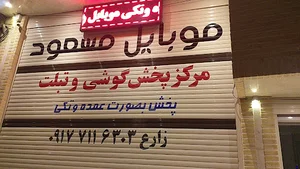 و تکی موبایل
موبایل مسعود
مرکز پخش گوشی و تبلت
پخش بصورت عمده و تکی
زارع ۰۹۱۷ ۷۱۱ ۶۳۰۳